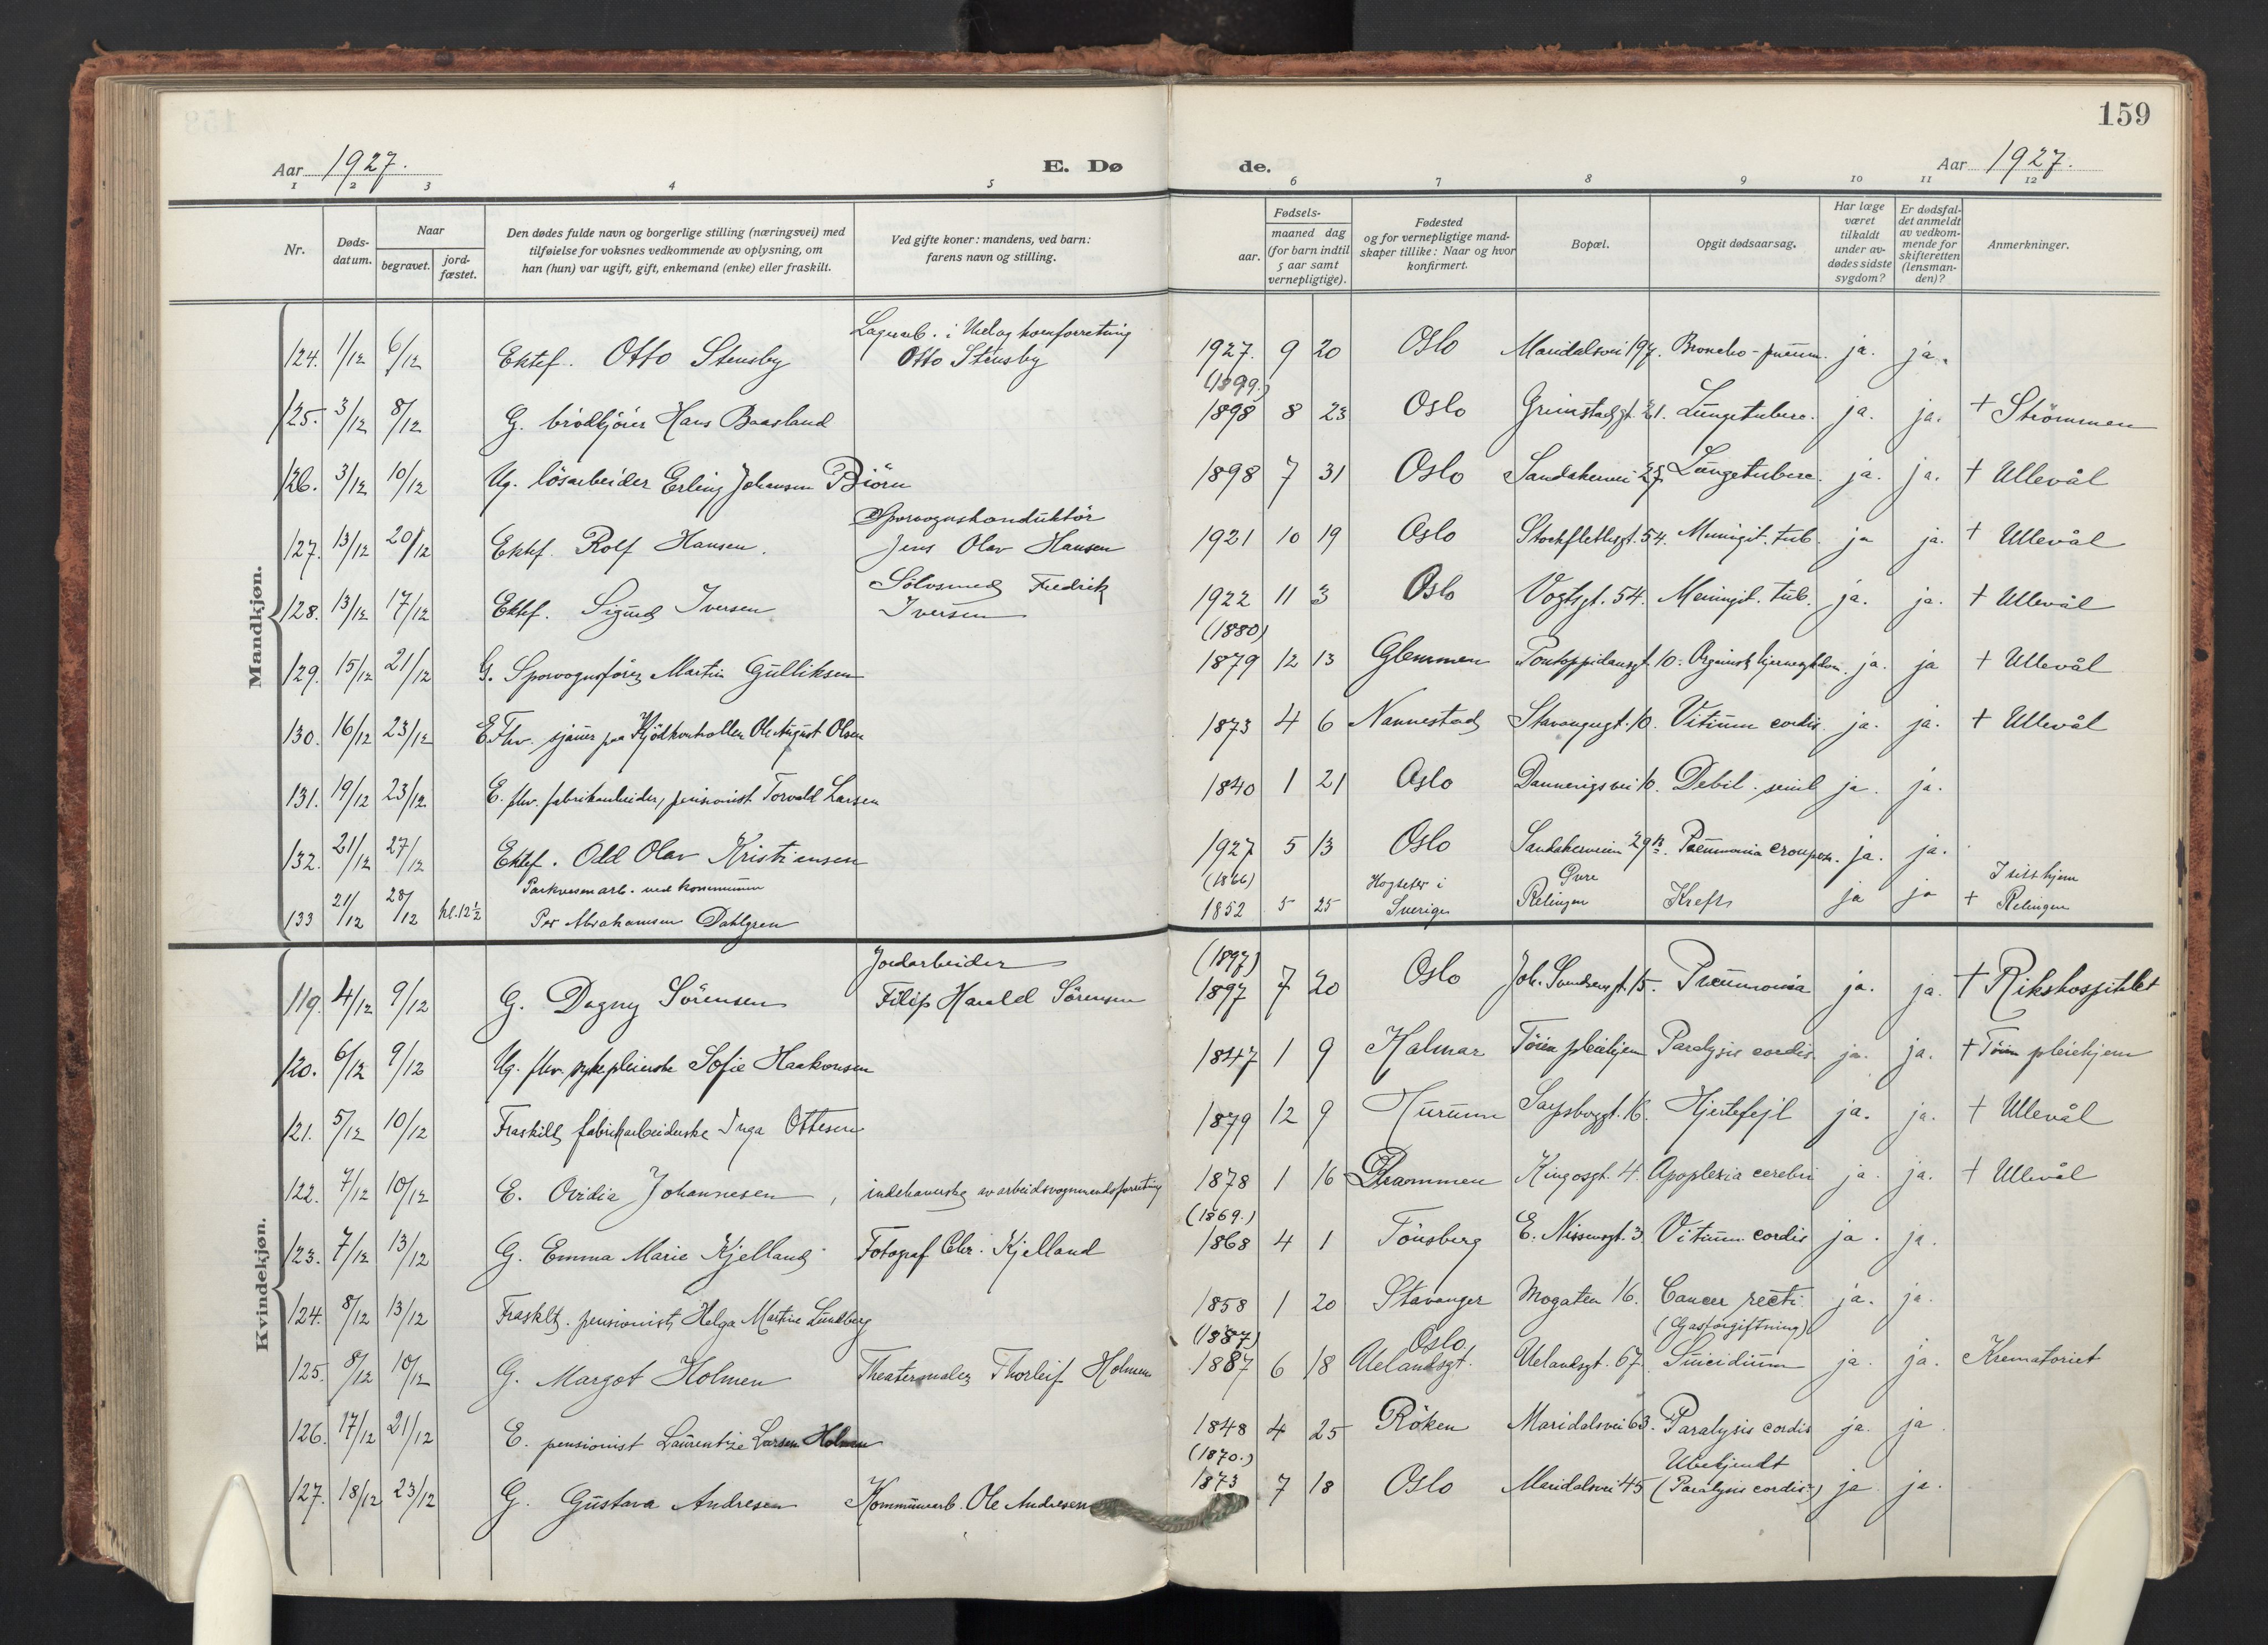 159
Aar 1927. E. Dø de. Aar 1927.
1 2 3 4 5 6 7 8 9 10 11 12
Nr.
Døds-
datum.
Naar
begravet.
jord-
fæstet.
Den dødes fulde navn og borgerlige stilling (næringsvei) med
tilføielse for voksnes vedkommende av oplysning, om
han (hun) var ugift, gift, enkemand (enke) eller fraskilt.
Ved gifte koner: mandens, ved barn:
farens navn og stilling.
Fødsels-
aar.
maaned dag
(for barn indtil
5 aar samt
vernepligtige).
Fødested
og for vernepligtige mand-
skaper tillike: Naar og hvor
konfirmert.
Bopæl.
Opgit dødsaarsag.
Har læge
været
tilkaldt
under av-
dødes sidste
sygdom?
Er dødsfal-
det anmeldt
av vedkom-
mende for
skifteretten
(lensman-
den)?
Anmerkninger.
Mandkjøn.
Lagerarb. i Mel og kornforretning
124. 1/12 6/12 Ektef. Otto Stensby Otto Stensby 1927. 9 20 Oslo Maridalsvei 197. Broncho-pneum. ja. ja.
(1899.)
125. 3/12 8/12 G. brödkjörer Hans Baasland 1898 8 23 Oslo Grimstadgt. 21. Lungetuberc. ja. ja. + Strömmen
126. 3/12 10/12 Ug. lösarbeider Erling Johansen Björn 1898 7 31 Oslo Sandakervei 27 Lungetuberc. ja. ja. + Ullevål
Sporvognskonduktör
127. 13/12 20/12 Ektef. Rolf Hansen. Jens Olav Hansen 1921 10 19 Oslo Stockflethsgt. 54. Meningit. tub. ja ja. + Ullevål
Sölvsmed Fredrik
128. 13/12 17/12 Ektef. Sigurd Iversen Iversen 1922 11 3 Oslo Vogtsgt. 54. Meningit. tub. ja. ja. + Ullevål
(1880)
129. 15/12 21/12 G. Sporvognsförer Martin Gulliksen 1879 12 13 Glemmen Pontoppidansgt 10. Organisk hjernesykdom. ja. ja + Ullevål
130. 16/12 23/12 E. Fhv. sjauer paa Kjödkontrollen Ole August Olsen 1873 4 6 Nannestad Stavangergt. 10. Vitium cordis. ja. ja. + Ullevål
131. 19/12 23/12 E. fhv. fabrikarbeider, pensionist Torvald Larsen 1840 1 21 Oslo Dannevigsvei 10. Debil. senil ja. ja.
132. 21/12 27/12 Ektef. Odd Olav Kristiansen 1927 5 13 Oslo Sandakerveien 29 Pneumonia croupos. ja. ja.
Parkvesenarb. ved kommunen (1866) Hogseter i Övre hjem
133 21/12 28/12 kl. 12½ Per Abrahamsen Dahlgren 1852 5 25 Sverige Relingen Kreft ja ja + Relingen
Kvindekjøn.
Jordarbeider (1897)
119. 4/12 9/12 G. Dagny Sörensen Filip Harald Sörensen 1897 7 20 Oslo Joh. Svendsensgt. 15. Pneumonia ja. ja. + Rikshospitalet
120. 6/12 9/12 Ug. fhv. sykepleierske Sofie Haakonsen 1847 1 9 Kalmar Töien pleiehjem Paralysis cordis ja. ja. + Töien pleiehjem
121. 5/12 10/12 Fraskilt fabrikarbeiderske Inga Ottesen 1879 12 9 Hurum Sarpsborggt. 16. Hjertefejl ja. ja. + Ullevål
122. 7/12 10/12 E. Ovidia Johannesen, indehaverske av arbeidsvognmandsforretning 1878 1 16 Drammen Kingosgt. 4. Apoplexia cerebri ja. ja. + Ullevål
(1869.)
123. 7/12 13/12 G. Emma Marie Kjelland Fotograf Chr. Kjelland 1868 4 1 Tönsberg E. Nissensgt. 3 Vitium cordis ja. ja.
124. 8/12 13/12 Fraskilt. pensionist Helga Martine Lundberg 1858 1 20 Stavanger Mogaten 16. Cancer recti ja. ja.
(1887) Oslo (Gasforgiftning)
125. 8/12 10/12 G. Margot Holmen Theatermaler Thorleif Holmen 1887 6 18 Uelandsgt. Uelandsgt. 67. Suicidium ja. ja. Krematoriet
126. 17/12 21/12 E. pensionist Laurentze Larsen Holmen 1848 4 25 Röken Maridalsvei 63. Paralysis cordis ja. ja
(1870.) Ubekjendt
127. 18/12 23/12 G. Gustava Andresen Kommunearb. Ole Andresen 1873 7 18 Oslo Maridalsvei 45 (Paralysis cordis?) ja ja.